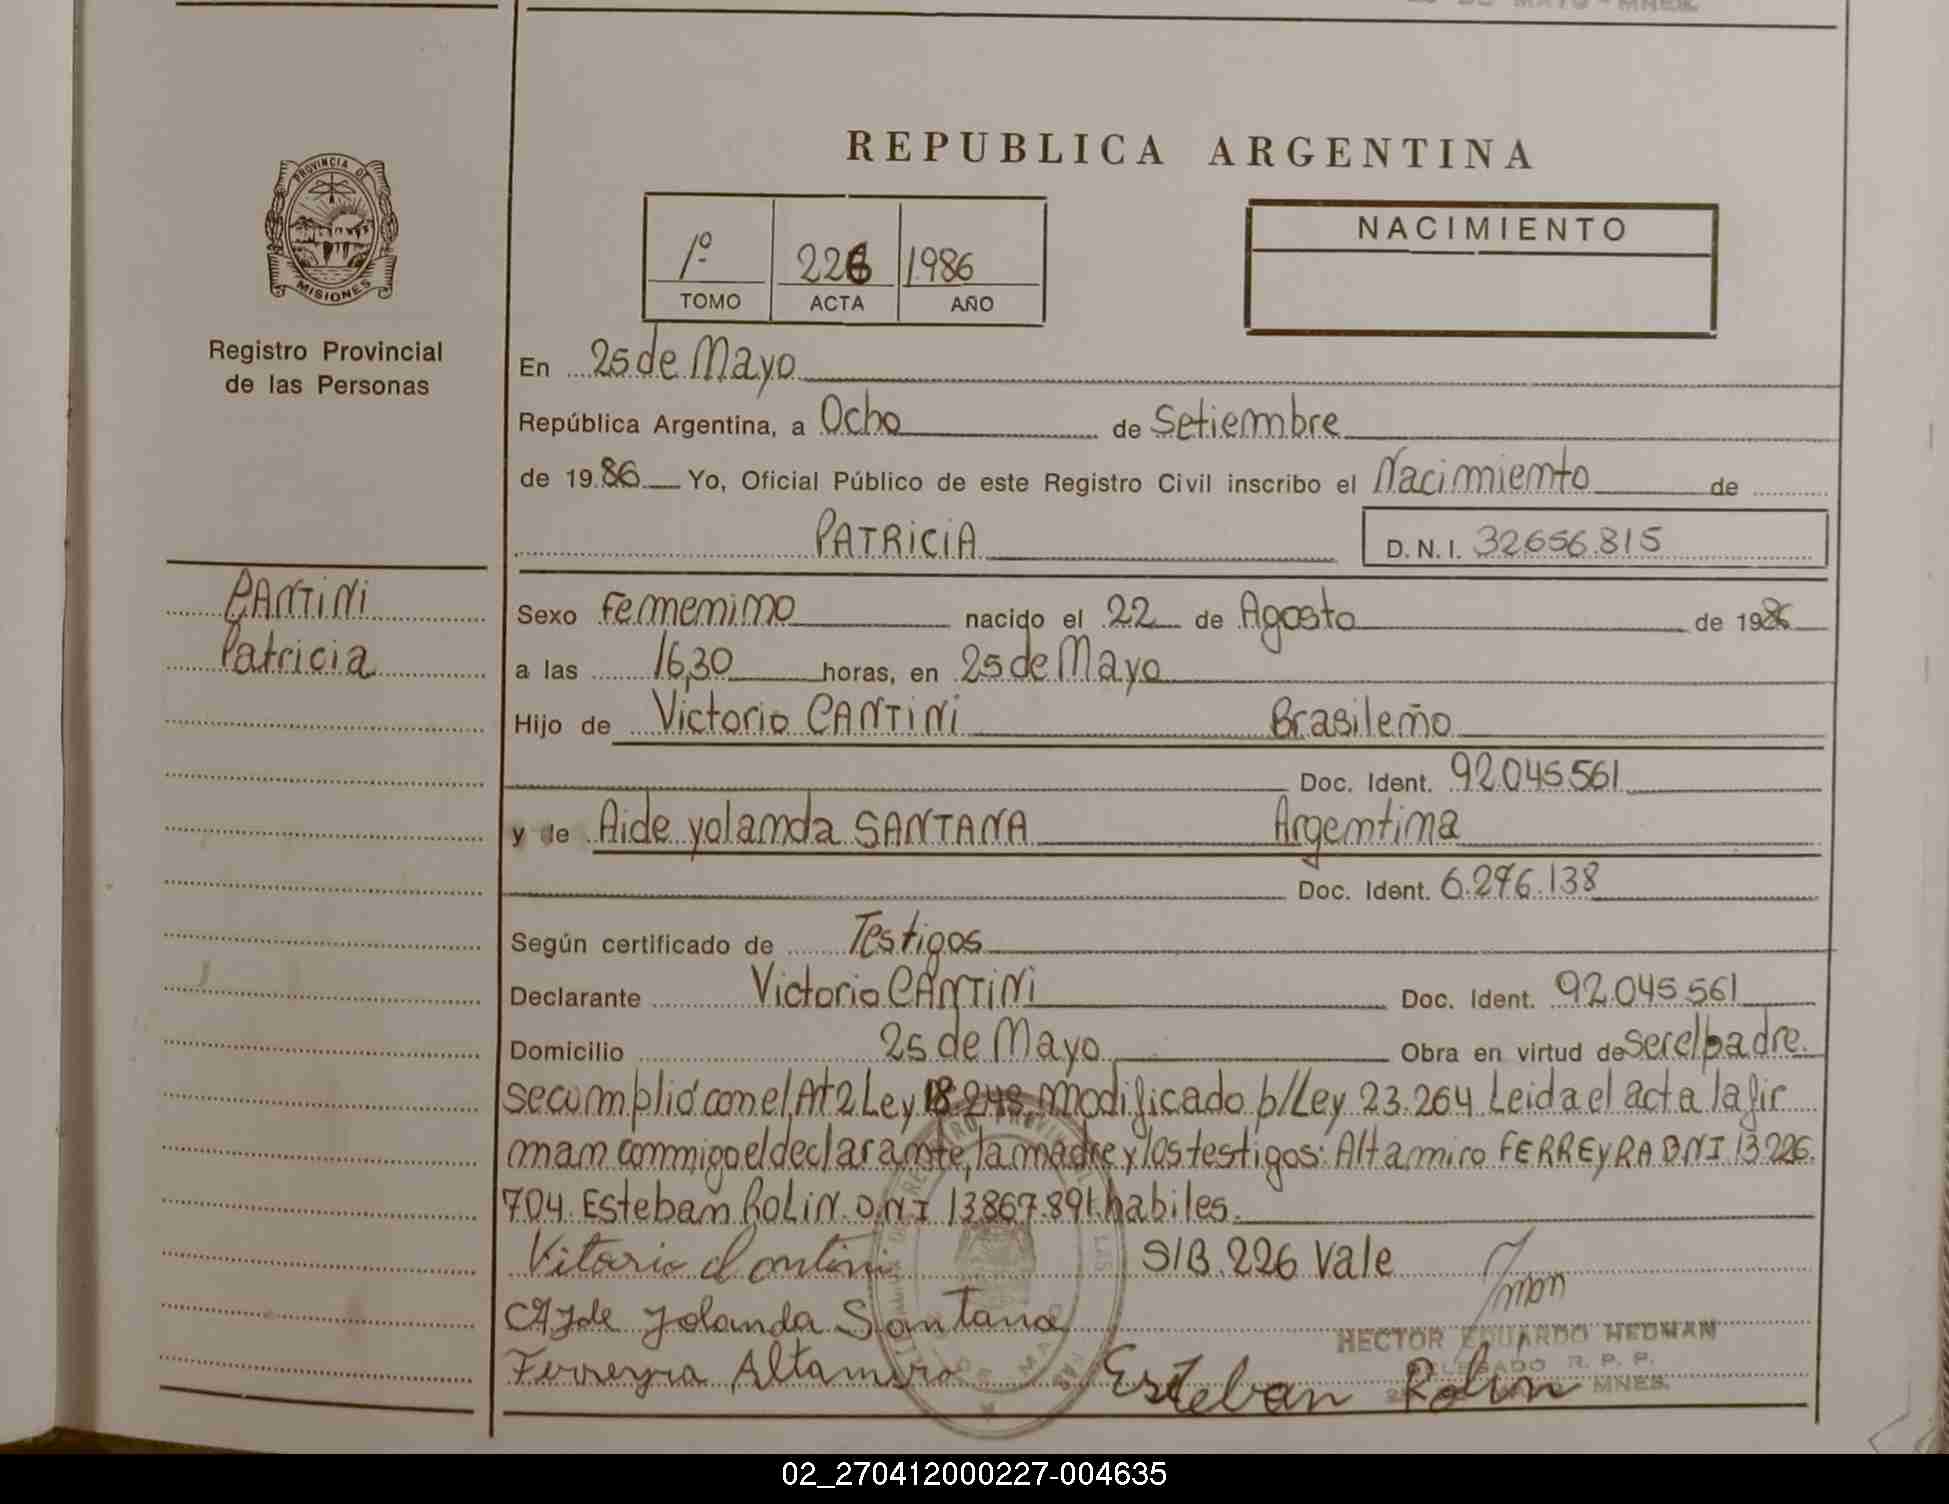 REPUBLICA ARGENTINA
PROVINCIA DE
MISIONES
Registro Provincial
de las Personas
1º 226 1986
TOMO ACTA AÑO
NACIMIENTO
En 25 de Mayo
República Argentina, a Ocho de Setiembre
de 1986 Yo, Oficial Público de este Registro Civil inscribo el Nacimiento de
PATRICIA D.N.I. 32656.815
CANTINI
Patricia
Sexo Femenino nacido el 22 de Agosto de 1986
a las 16,30 horas, en 25 de Mayo
Hijo de Victorio CANTINI Brasileño
Doc. Ident. 92.045.561
y de Aide yolanda SANTANA Argentina
Doc. Ident. 6.276.138
Según certificado de Testigos
Declarante Victorio CANTINI Doc. Ident. 92.045.561
Domicilio 25 de Mayo Obra en virtud de ser el padre.
se cumplió con el At 2 Ley 18.248, modificado p/Ley 23.264 Leida el acta la fir
man conmigo el declarante, la madre y los testigos: Altamiro FERREYRA DNI 13.226.
704. Esteban ROLIN. DNI 13.867.891. habiles.
Vitorio Cantini S/B. 226 Vale
Ayde Yolanda Santana
HECTOR EDUARDO HEDMAN
DELEGADO R. P. P.
MNES.
Ferreyra Altamiro Esteban Rolin
02_270412000227-004635